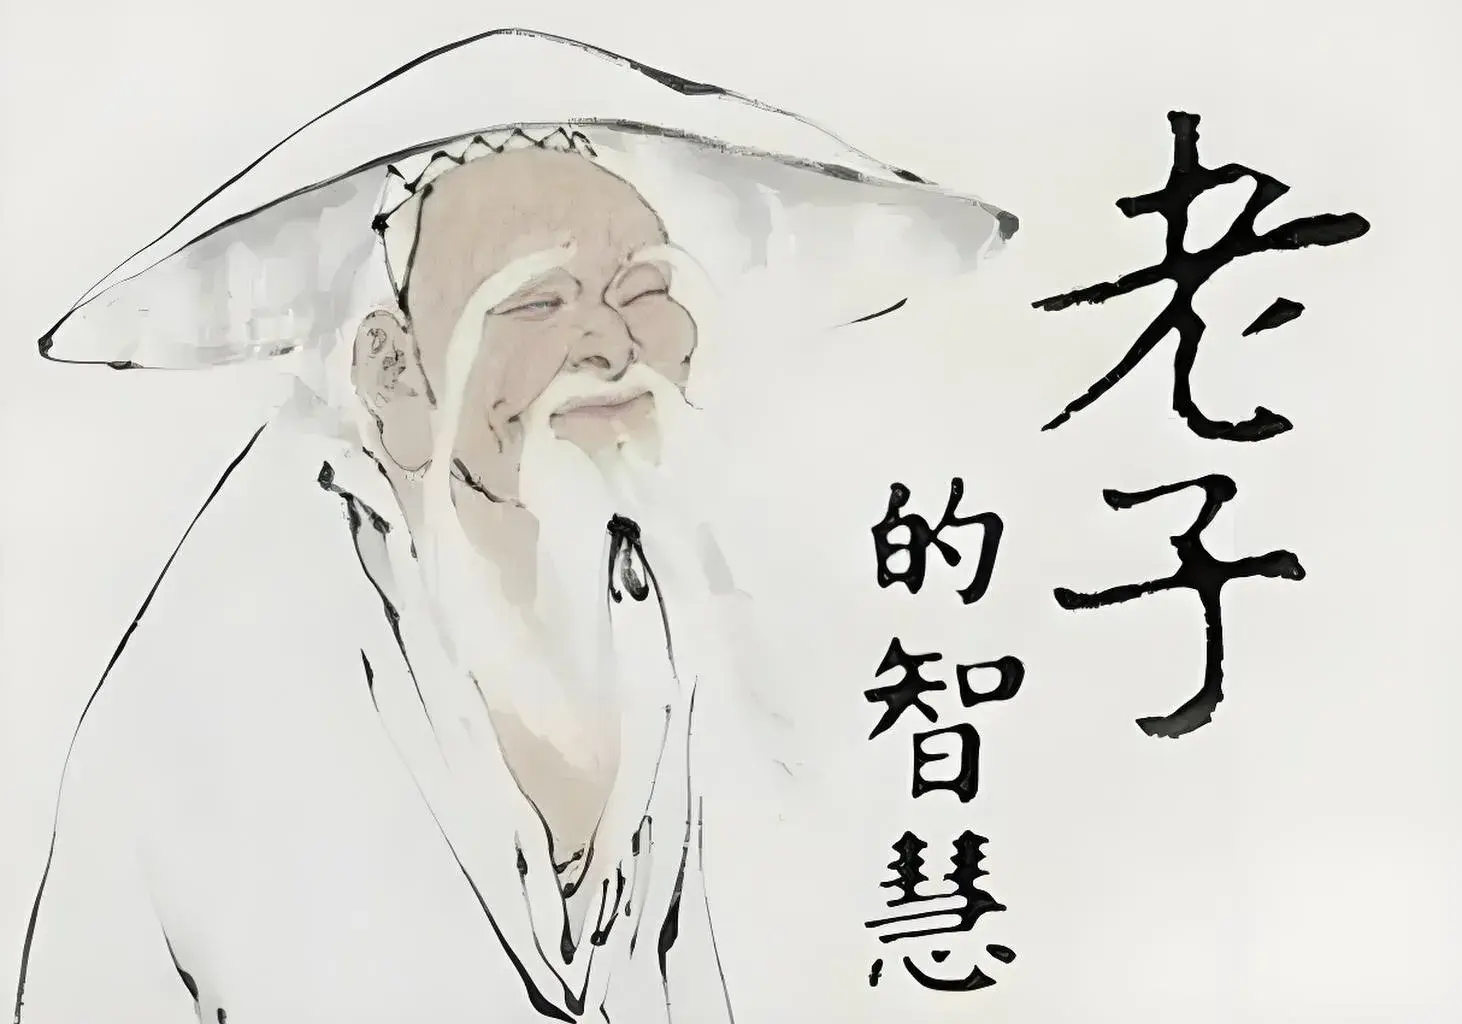 老子
的智慧